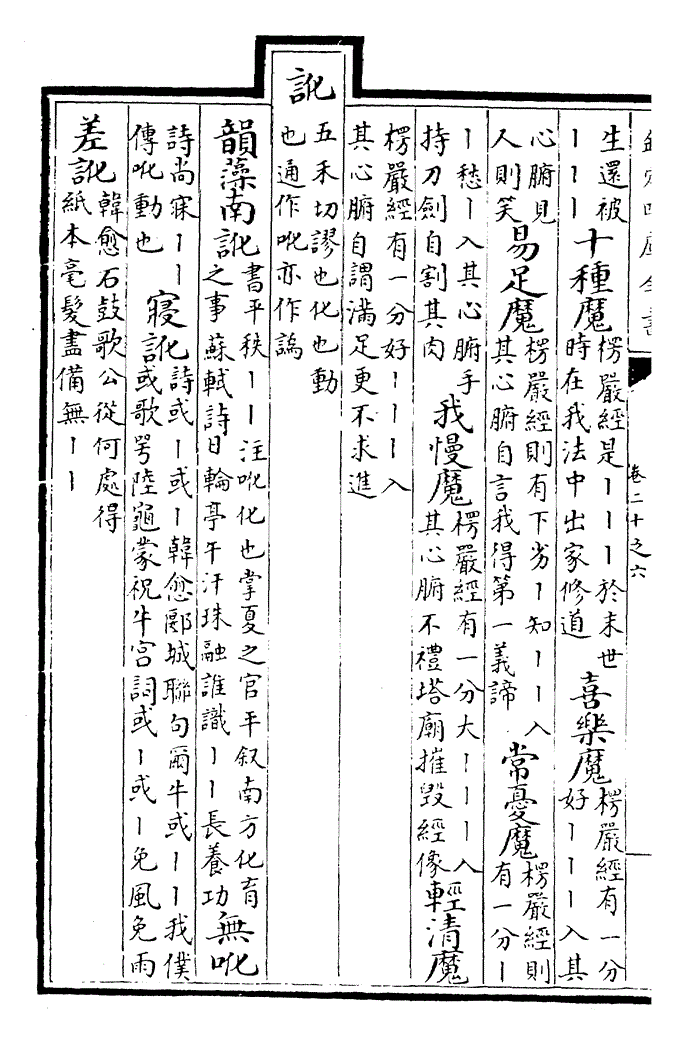 卷二十之六
生還被
丨丨丨
十種魔
楞嚴經是丨丨丨於末世
時在我法中出家修道
喜樂魔
楞嚴經有一分
好丨丨丨入其
心腑見
人則笑
易足魔
楞嚴經則有下劣丨知丨丨入
其心腑自言我得第一義諦
常憂魔
楞嚴經則
有一分丨
丨愁丨入其心腑手
持刀劍自割其肉
我慢魔
楞嚴經有一分大丨丨丨入
其心腑不禮塔廟摧毀經像
輕清魔
楞嚴經有一分好丨丨丨入
其心腑自謂滿足更不求進
訛
五禾切謬也化也動
也通作吪亦作譌
韻藻南訛
書平秩丨丨注吪化也掌夏之官平叙南方化育
之事蘇軾詩日輪亭午汗珠融誰識丨丨長養功
無吪
詩尚寐丨丨
傳吪動也
寢訛
詩或丨或丨韓愈郾城聯句爾牛或丨丨我僕
或歌咢陸龜蒙祝牛宫詞或丨或丨免風免雨
差訛
韓愈石鼓歌公從何處得
紙本毫髮盡備無丨丨